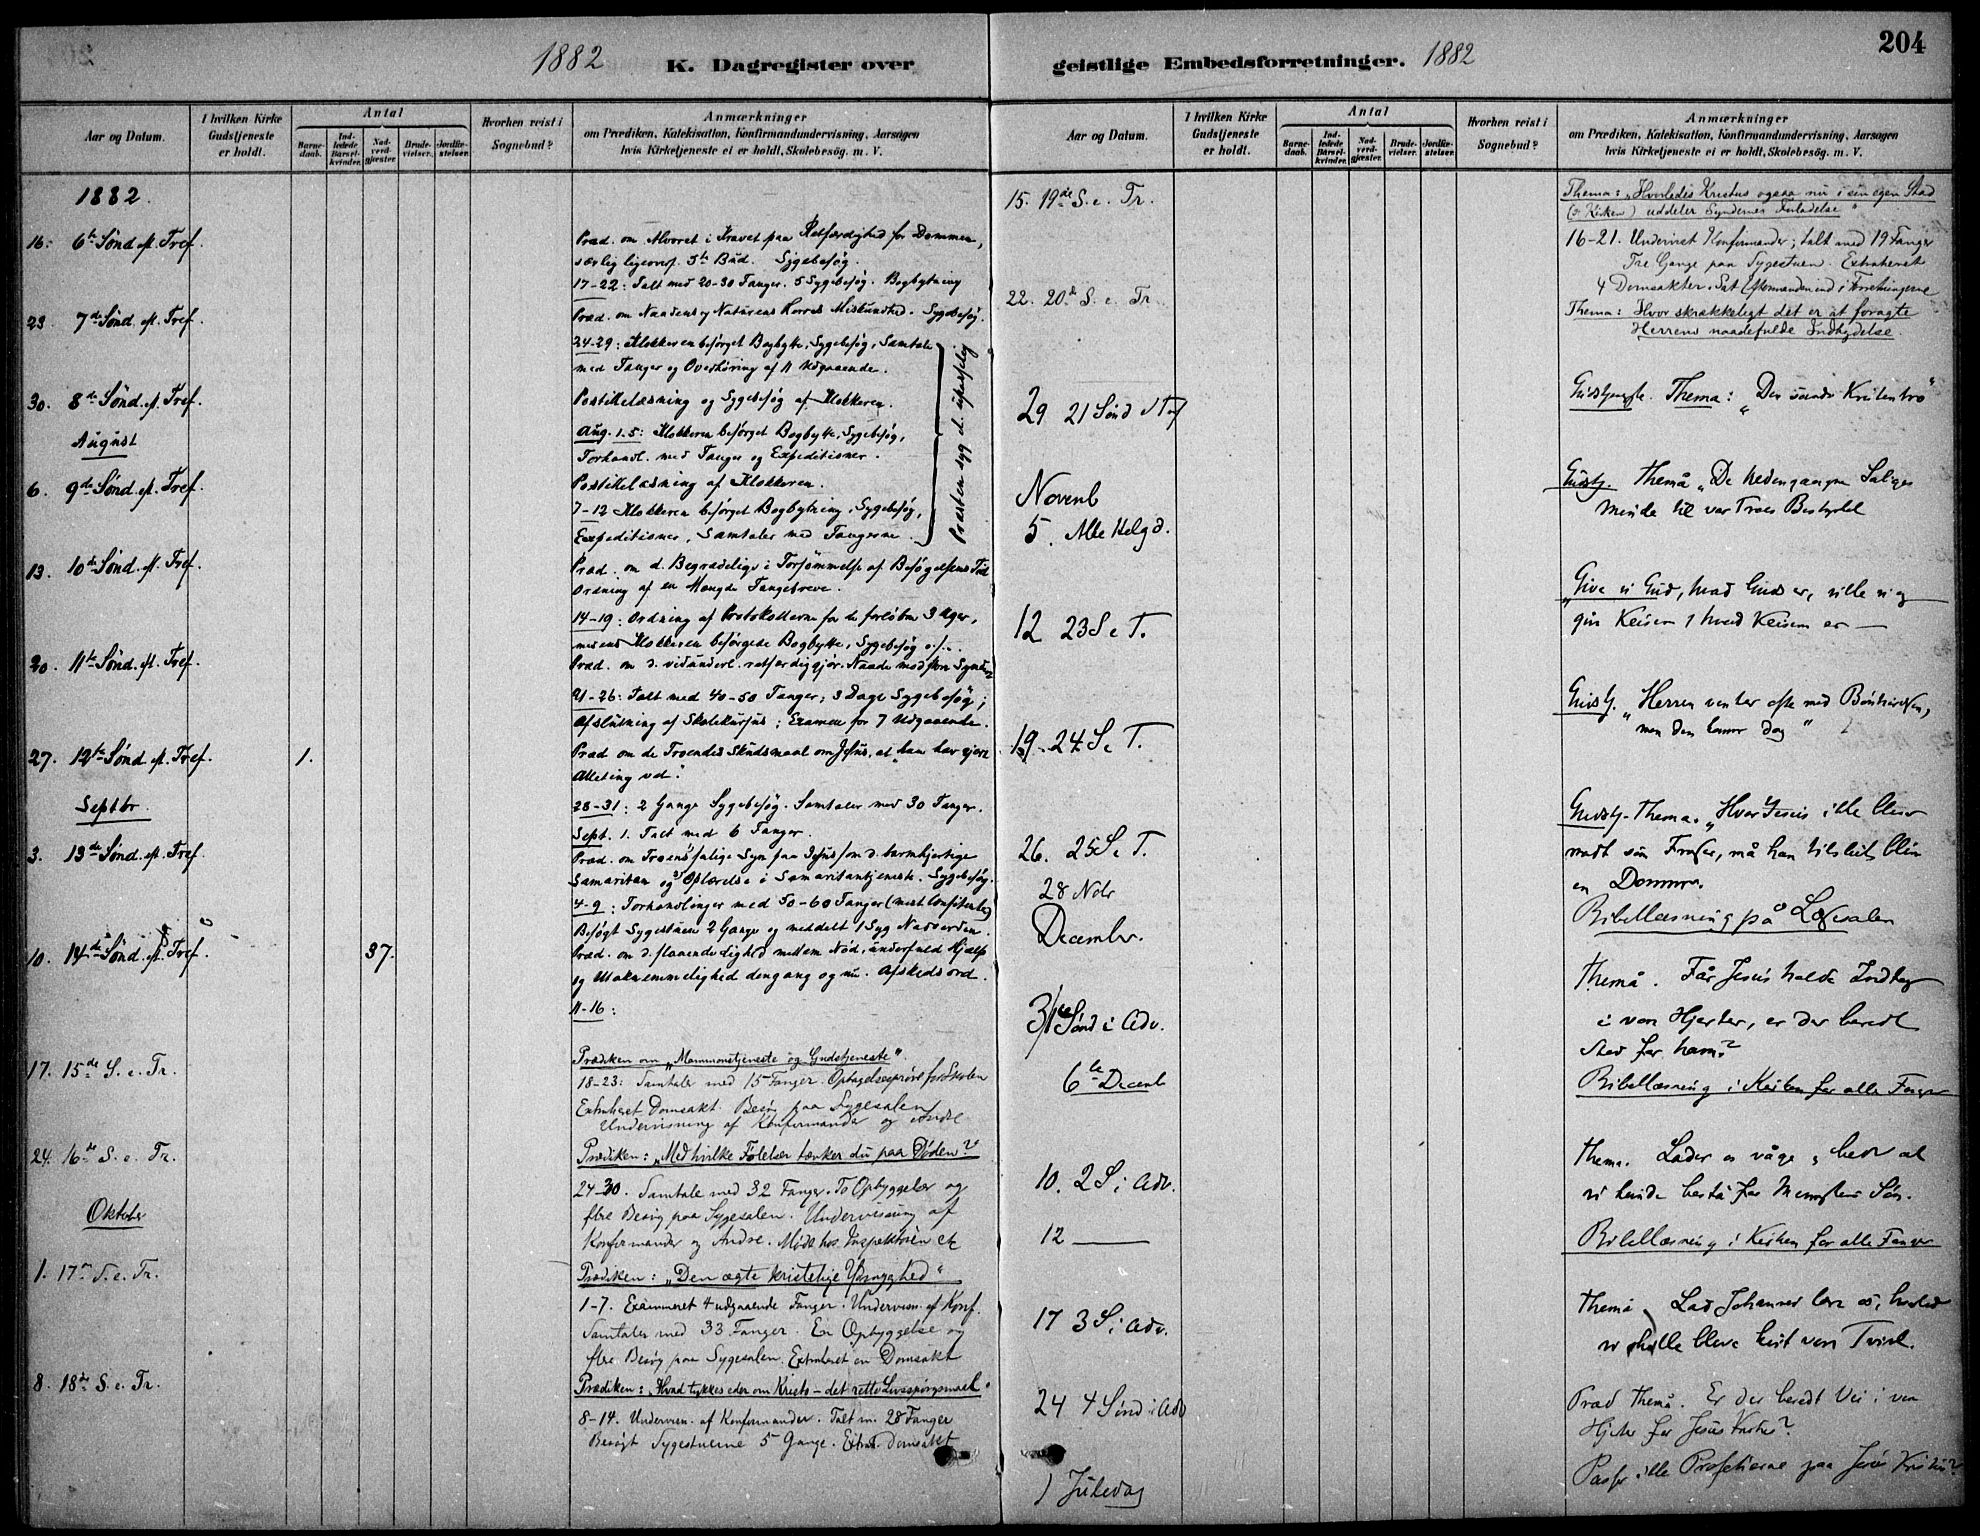 1882 K. Dagregister over
Aar og Datum.
I hvilken Kirke Gudstjeneste er holdt.
Antal
Barnedaab.
Indledede Barselkvinder.
Nadverdgjester.
Brudevielser.
Jordfæstelser.
Hvorhen reist i Sognebud?
Anmærkninger
om Prædiken, Katekisation, Konfirmandundervisning, Aarsagen
hvis Kirketjeneste ei er holdt, Skolebesøg. m. V.
1882.
16. 6te Sønd. ef. Tref.
Præd. om Alvoret i Kravet paa Retfærdighed for Dommen,
særlig ligeoverf. 5te Bud. Sygebesøg.
17-22: Talt med 20-30 Fanger. 5 Sygebesøg. Bogbytning
23. 7de Sønd. ef. Tref.
Præd. om Naadens og Naturens Herres Miskundhed. Sygebesøg.
24-29: Klokkeren besørget Bogbytte, Sygebesøg, Samtale
med Fanger og Overhøring af 11 Udgaaende.
30. 8de Sønd. ef. Tref.
Postillelæsning og Sygebesøg af Klokkeren.
August
Aug. 1-5: Klokkeren besørget Bogbytte, Sygebesøg,
Forhandl. med Fanger og Expeditioner.
6. 9de Sønd. ef. Tref.
Postillelæsning af Klokkeren.
7-12 Klokkeren besørget Bogbytning, Sygebesøg,
Expeditioner, Samtaler med Fangerne.
Præsten syg el. upasselig
13. 10de Sønd. ef. Tref.
Præd. om d. Begrædelige i Forsømmelse af Besøgelsens Tid
Ordning af en Mængde Fangebreve.
14-19: Ordning af Protokollerne for de forløbne 3 Uger,
medens Klokkeren besørgede Bogbytte, Sygebesøg o.s.v.
20. 11te Sønd. ef. Tref.
Præd. om d. vidunderl. retfærdiggjør. Naade mod store Syndere
21-26: Talt med 40-50 Fanger; 3 Dage Sygebesøg;
Afslutning af Skolekursus; Examen for 7 Udgaaende.
27. 12te Sønd. ef. Tref. 1.
Præd om de Troendes Skudsmaal om Jesus, at "han har gjort
Alleting vel".
Septbr.
28-31: 2 Gange Sygebesøg. Samtaler med 30 Fanger.
Sept. 1. Talt med 6 Fanger.
3. 13de Sønd. ef. Tref.
Præd. om Troens salige Syn paa Jesus som d. barmhjertige
Samaritan og Oplærelse i Samaritantjeneste. Sygebesøg.
4-9: Forhandlinger med 50-60 Fanger (mest Confitenter)
Besøgt Sygestuen 2 Gange og meddelt 1 Syg Nadverden.
10. 14de Sønd. ef. Tref. 37.
Præd. om d. staaende dighed mellem Nød, underfuld Hjælp
og Utaknemmelighed dengang og nu. Afskedsord.
11-16:
17. 15de S. e. Tr.
Prædiken om "Mammonstjeneste og Gudstjeneste".
18-23: Samtaler med 15 Fanger. Optagelsesprøve for Skolen
Extraheret Domsakt. Besøg paa Sygesalen
Undervisning af Konfirmander og Andre
24. 16de S. e. Tr.
Prædiken: "Med hvilke Følelser tænker du paa Døden?"
24-30. Samtale med 32 Fanger. To Opbyggelser og
flere Besøg paa Sygesalen. Undervisning af
Konfirmander og Andre. Møde hos Inspektøren etc
Oktober
1. 17de S. e. Tr.
Prædiken: "Den ægte kristelige Ydmyghed"
1-7. Examineret 4 udgaaende Fanger. Undervisn. af Konf.
Samtaler med 33 Fanger. En Opbyggelse og
flere Besøg paa Sygesalen. Extraheret en Domsakt
8. 18de S. e. Tr.
Prædiken: "Hvad tykkes eder om Kristo - det rette Livsspørgsmaal"
8-14. Undervisn. af Konfirmander. Talt m. 28 Fanger
Besøgt Sygestuerne 5 Gange. Extrah. Domsakt
geistlige Embedsforretninger. 1882 204
Aar og Datum.
I hvilken Kirke Gudstjeneste er holdt.
Antal
Barnedaab.
Indledede Barselkvinder.
Nadverdgjester.
Brudevielser.
Jordfæstelser.
Hvorhen reist i Sognebud?
Anmærkninger
om Prædiken, Katekisation, Konfirmandundervisning, Aarsagen
hvis Kirketjeneste ei er holdt, Skolebesøg. m. V.
15. 19de S. e. Tr.
Thema: "Hvorledes Kristus ogsaa nu i sin egen Stad
(i: Kirken) uddeler Syndernes Forladelse"
16-21. Undervist Konfirmander; talt med 19 Fanger
Tre Gange paa Sygestuen. Extraheret
4 Domsakter. Sat Eftermanden ind i Forretningerne
22. 20de S. e. Tr.
Thema: Hvor skrækkeligt det er at foragte
Herrens naadefulde Indbydelse.
29 21 Sønd e Tref
Gudstjeneste. Thema: "Den sande Kristentro"
Novemb
5. Alle Helgd.
Gudstj. Thema "De hedengangne Saliges
Minde til vor Troes Bestyrkel
12 23 S e T.
"Give vi Gud, hvad Guds er, ville vi og
give Keiseren hvad Keiserens er —
19. 24. S e T.
Gudstj. "Herren venter ofte med Bønhørelsen,
men den kommer dog"
26. 25 S e T.
Gudstj. Thema. "Hvor Jesus ikke bliver
modt som Frelser, må han tilsidst blive
en Dommer.
28 Nobr
Bibellæsning på Læsesalen
December.
3 1ste Sønd i Adv.
Thema. Får Jesus holde Indtog
i vore Hjerter, er der beredt
Sted for ham?
6te Decemb
Bibellæsning i Kirken for alle Fanger
10. 2 S i Adv.
Thema. Lader os våge og bede at
vi kunde bestå for Menneskens Søn.
12 —
Bibellæsning i Kirken for alle Fanger
17 3 S i Adv.
Thema Lad Johannes lære os, hvorled
vi skulle blive kvit vor Tvivl.
24 4 Sønd i Adv
Præd Thema. Er der beredt Vei i vore
Hjerter for Jesus Kristus?
1 Juledag
Passer ikke Profetierne paa Jesus Kristus?